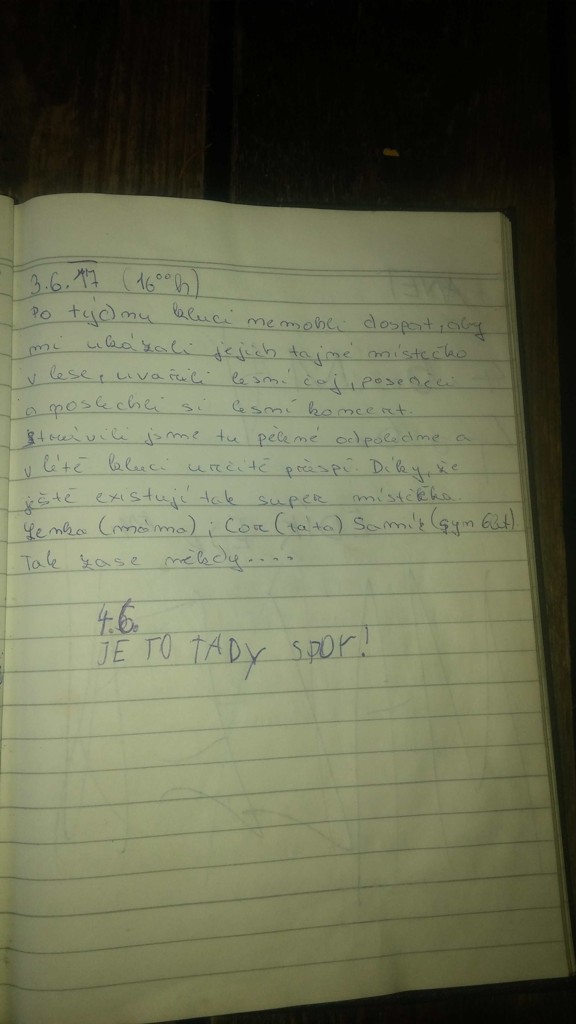 3.6.17 (16⁰⁰h)
Po týdnu kluci nemohli dospat, aby
mi ukázali jejich tajné místečko
v lese, uvařili lesní čaj, poseděli
a poslechli si lesní koncert.
Strávili jsme tu pěkné odpoledne a
v létě kluci určitě přespí. Díky, že
ještě existují tak super místečka.
Lenka (máma), (táta) Samík (syn 6let)
Tak zase někdy....
4.6.
JE TO TADY SPOr!